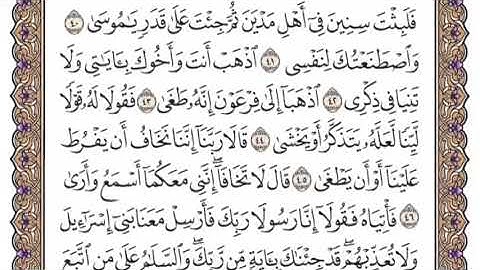 فَلَبِثْتَ سِنِينَ فِىٓ أَهْلِ مَدْيَنَ ثُمَّ جِئْتَ عَلَىٰ قَدَرٍ يَٰمُوسَىٰ ٤٠
وَٱصْطَنَعْتُكَ لِنَفْسِى ٤١ ٱذْهَبْ أَنتَ وَأَخُوكَ بِـَٔايَٰتِى وَلَا
تَنِيَا فِى ذِكْرِى ٤٢ ٱذْهَبَآ إِلَىٰ فِرْعَوْنَ إِنَّهُۥ طَغَىٰ ٤٣ فَقُولَا لَهُۥ قَوْلًا
لَّيِّنًا لَّعَلَّهُۥ يَتَذَكَّرُ أَوْ يَخْشَىٰ ٤٤ قَالَا رَبَّنَآ إِنَّنَا نَخَافُ أَن يَفْرُطَ
عَلَيْنَآ أَوْ أَن يَطْغَىٰ ٤٥ قَالَ لَا تَخَافَآ ۖ إِنَّنِى مَعَكُمَآ أَسْمَعُ وَأَرَىٰ
٤٦ فَأْتِيَاهُ فَقُولَآ إِنَّا رَسُولَا رَبِّكَ فَأَرْسِلْ مَعَنَا بَنِىٓ إِسْرَٰٓءِيلَ
وَلَا تُعَذِّبْهُمْ ۖ قَدْ جِئْنَٰكَ بِـَٔايَةٍ مِّن رَّبِّكَ ۖ وَٱلسَّلَٰمُ عَلَىٰ مَنِ ٱتَّبَعَ